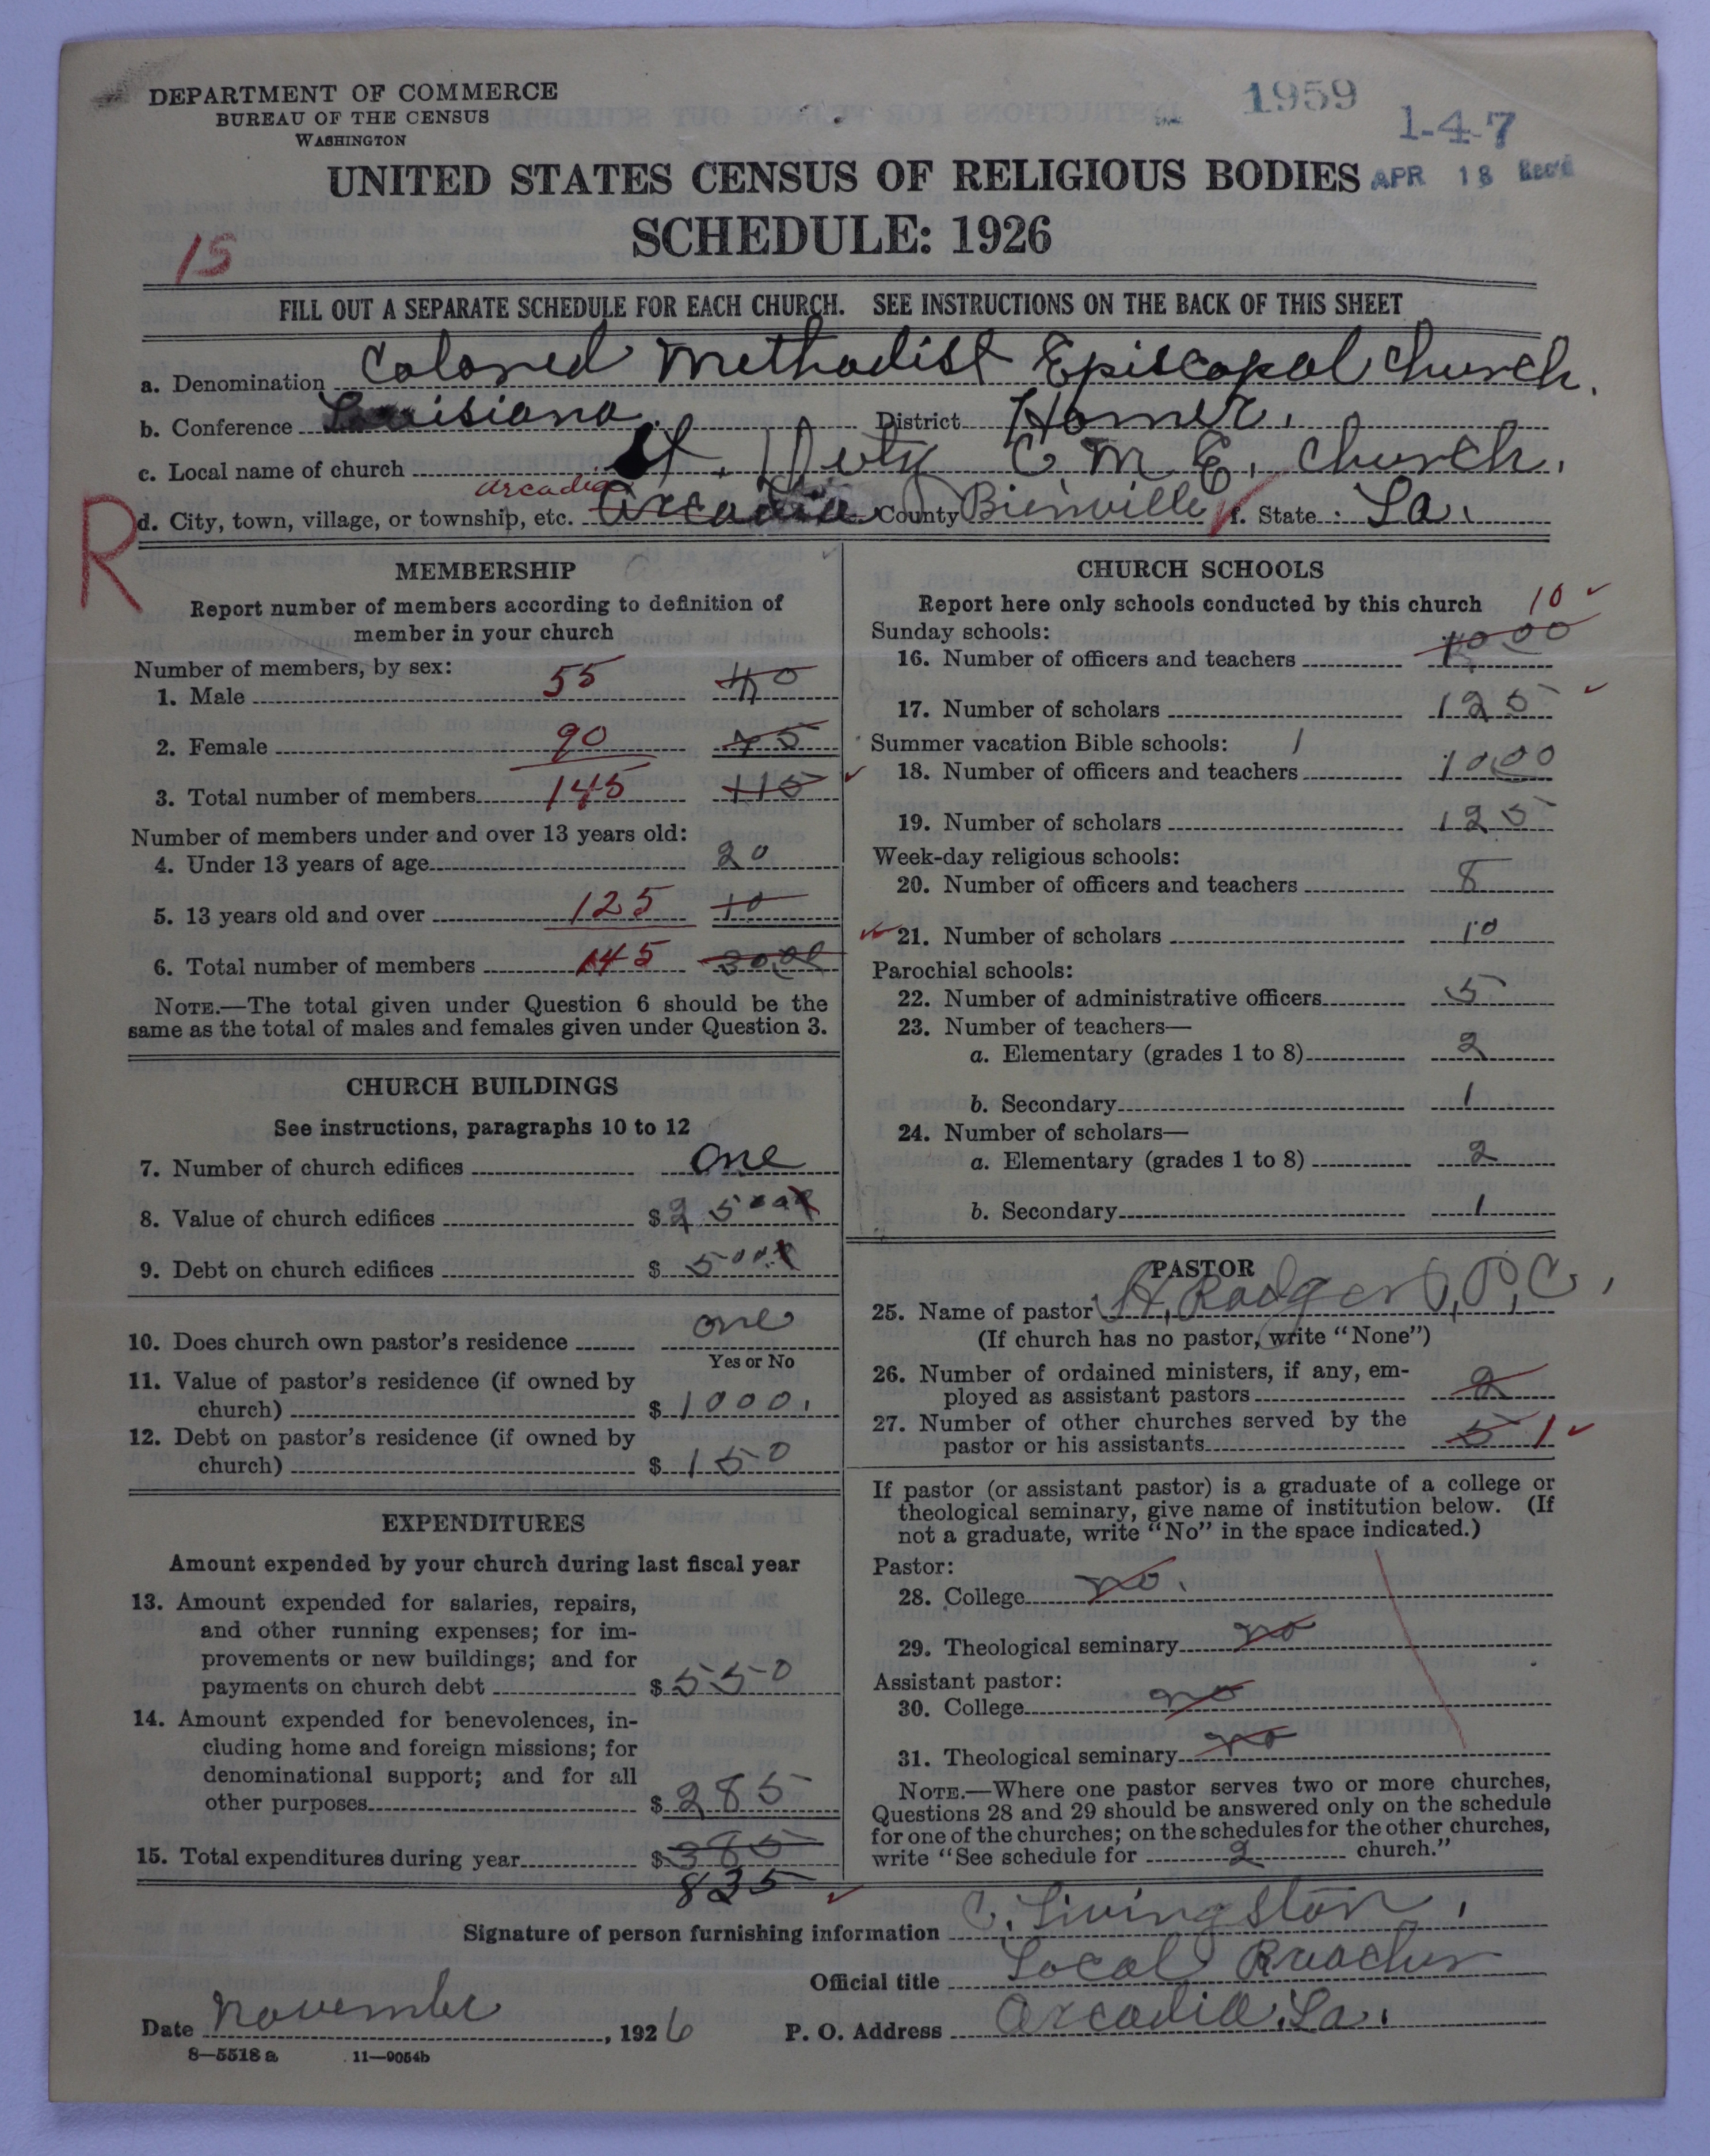 DEPARTMENT OF COMMERCE
BUREAU OF THE CENSUS
WASHINGTON
1959
1-4-7
APR 18 Rec'd
UNITED STATES CENSUS OF RELIGIOUS BODIES
SCHEDULE: 1926
15
FILL OUT A SEPARATE SCHEDULE FOR EACH CHURCH. SEE INSTRUCTIONS ON THE BACK OF THIS SHEET
a. Denomination Colored Methodist Episcopal Church.
b. Conference Louisiana District Homer.
c. Local name of church St. C M E, Church.
R
Arcadia
d. City, town, village, or township, etc. Arcadia County Bienville f. State La.
MEMBERSHIP
Report number of members according to definition of
member in your church
Number of members, by sex:
1. Male 55 40
2. Female 90 75
3. Total number of members 145 115
Number of members under and over 13 years old:
4. Under 13 years of age 20
5. 13 years old and over 125 10
6. Total number of members 145 30.00
NOTE.—The total given under Question 6 should be the
same as the total of males and females given under Question 3.
CHURCH BUILDINGS
See instructions, paragraphs 10 to 12
7. Number of church edifices One
8. Value of church edifices $ 2500
9. Debt on church edifices $ 500
10. Does church own pastor's residence one
Yes or No
11. Value of pastor's residence (if owned by
church) $ 1000.
12. Debt on pastor's residence (if owned by
church) $ 150
EXPENDITURES
Amount expended by your church during last fiscal year
13. Amount expended for salaries, repairs,
and other running expenses; for im-
provements or new buildings; and for
payments on church debt $ 550
14. Amount expended for benevolences, in-
cluding home and foreign missions; for
denominational support; and for all
other purposes $ 285
15. Total expenditures during year $ 385
835
CHURCH SCHOOLS
Report here only schools conducted by this church 10
Sunday schools:
16. Number of officers and teachers 10.00
17. Number of scholars 125
Summer vacation Bible schools: 1
18. Number of officers and teachers 10.00
19. Number of scholars 125
Week-day religious schools:
20. Number of officers and teachers 8
21. Number of scholars 10
Parochial schools:
22. Number of administrative officers 5
23. Number of teachers—
a. Elementary (grades 1 to 8) 2
b. Secondary 1
24. Number of scholars—
a. Elementary (grades 1 to 8) 2
b. Secondary 1
PASTOR
25. Name of pastor H. Rodgers, P, C,
(If church has no pastor, write "None")
26. Number of ordained ministers, if any, em-
ployed as assistant pastors 2
27. Number of other churches served by the
pastor or his assistants 5 1
If pastor (or assistant pastor) is a graduate of a college or
theological seminary, give name of institution below. (If
not a graduate, write "No" in the space indicated.)
Pastor:
28. College no.
29. Theological seminary no
Assistant pastor:
30. College no
31. Theological seminary no
NOTE.—Where one pastor serves two or more churches,
Questions 28 and 29 should be answered only on the schedule
for one of the churches; on the schedules for the other churches,
write "See schedule for 2 church."
Signature of person furnishing information C. Livingston,
Official title Local Preacher
Date November, 1926 P. O. Address Arcadia, La.
8—5518 a 11—9054b